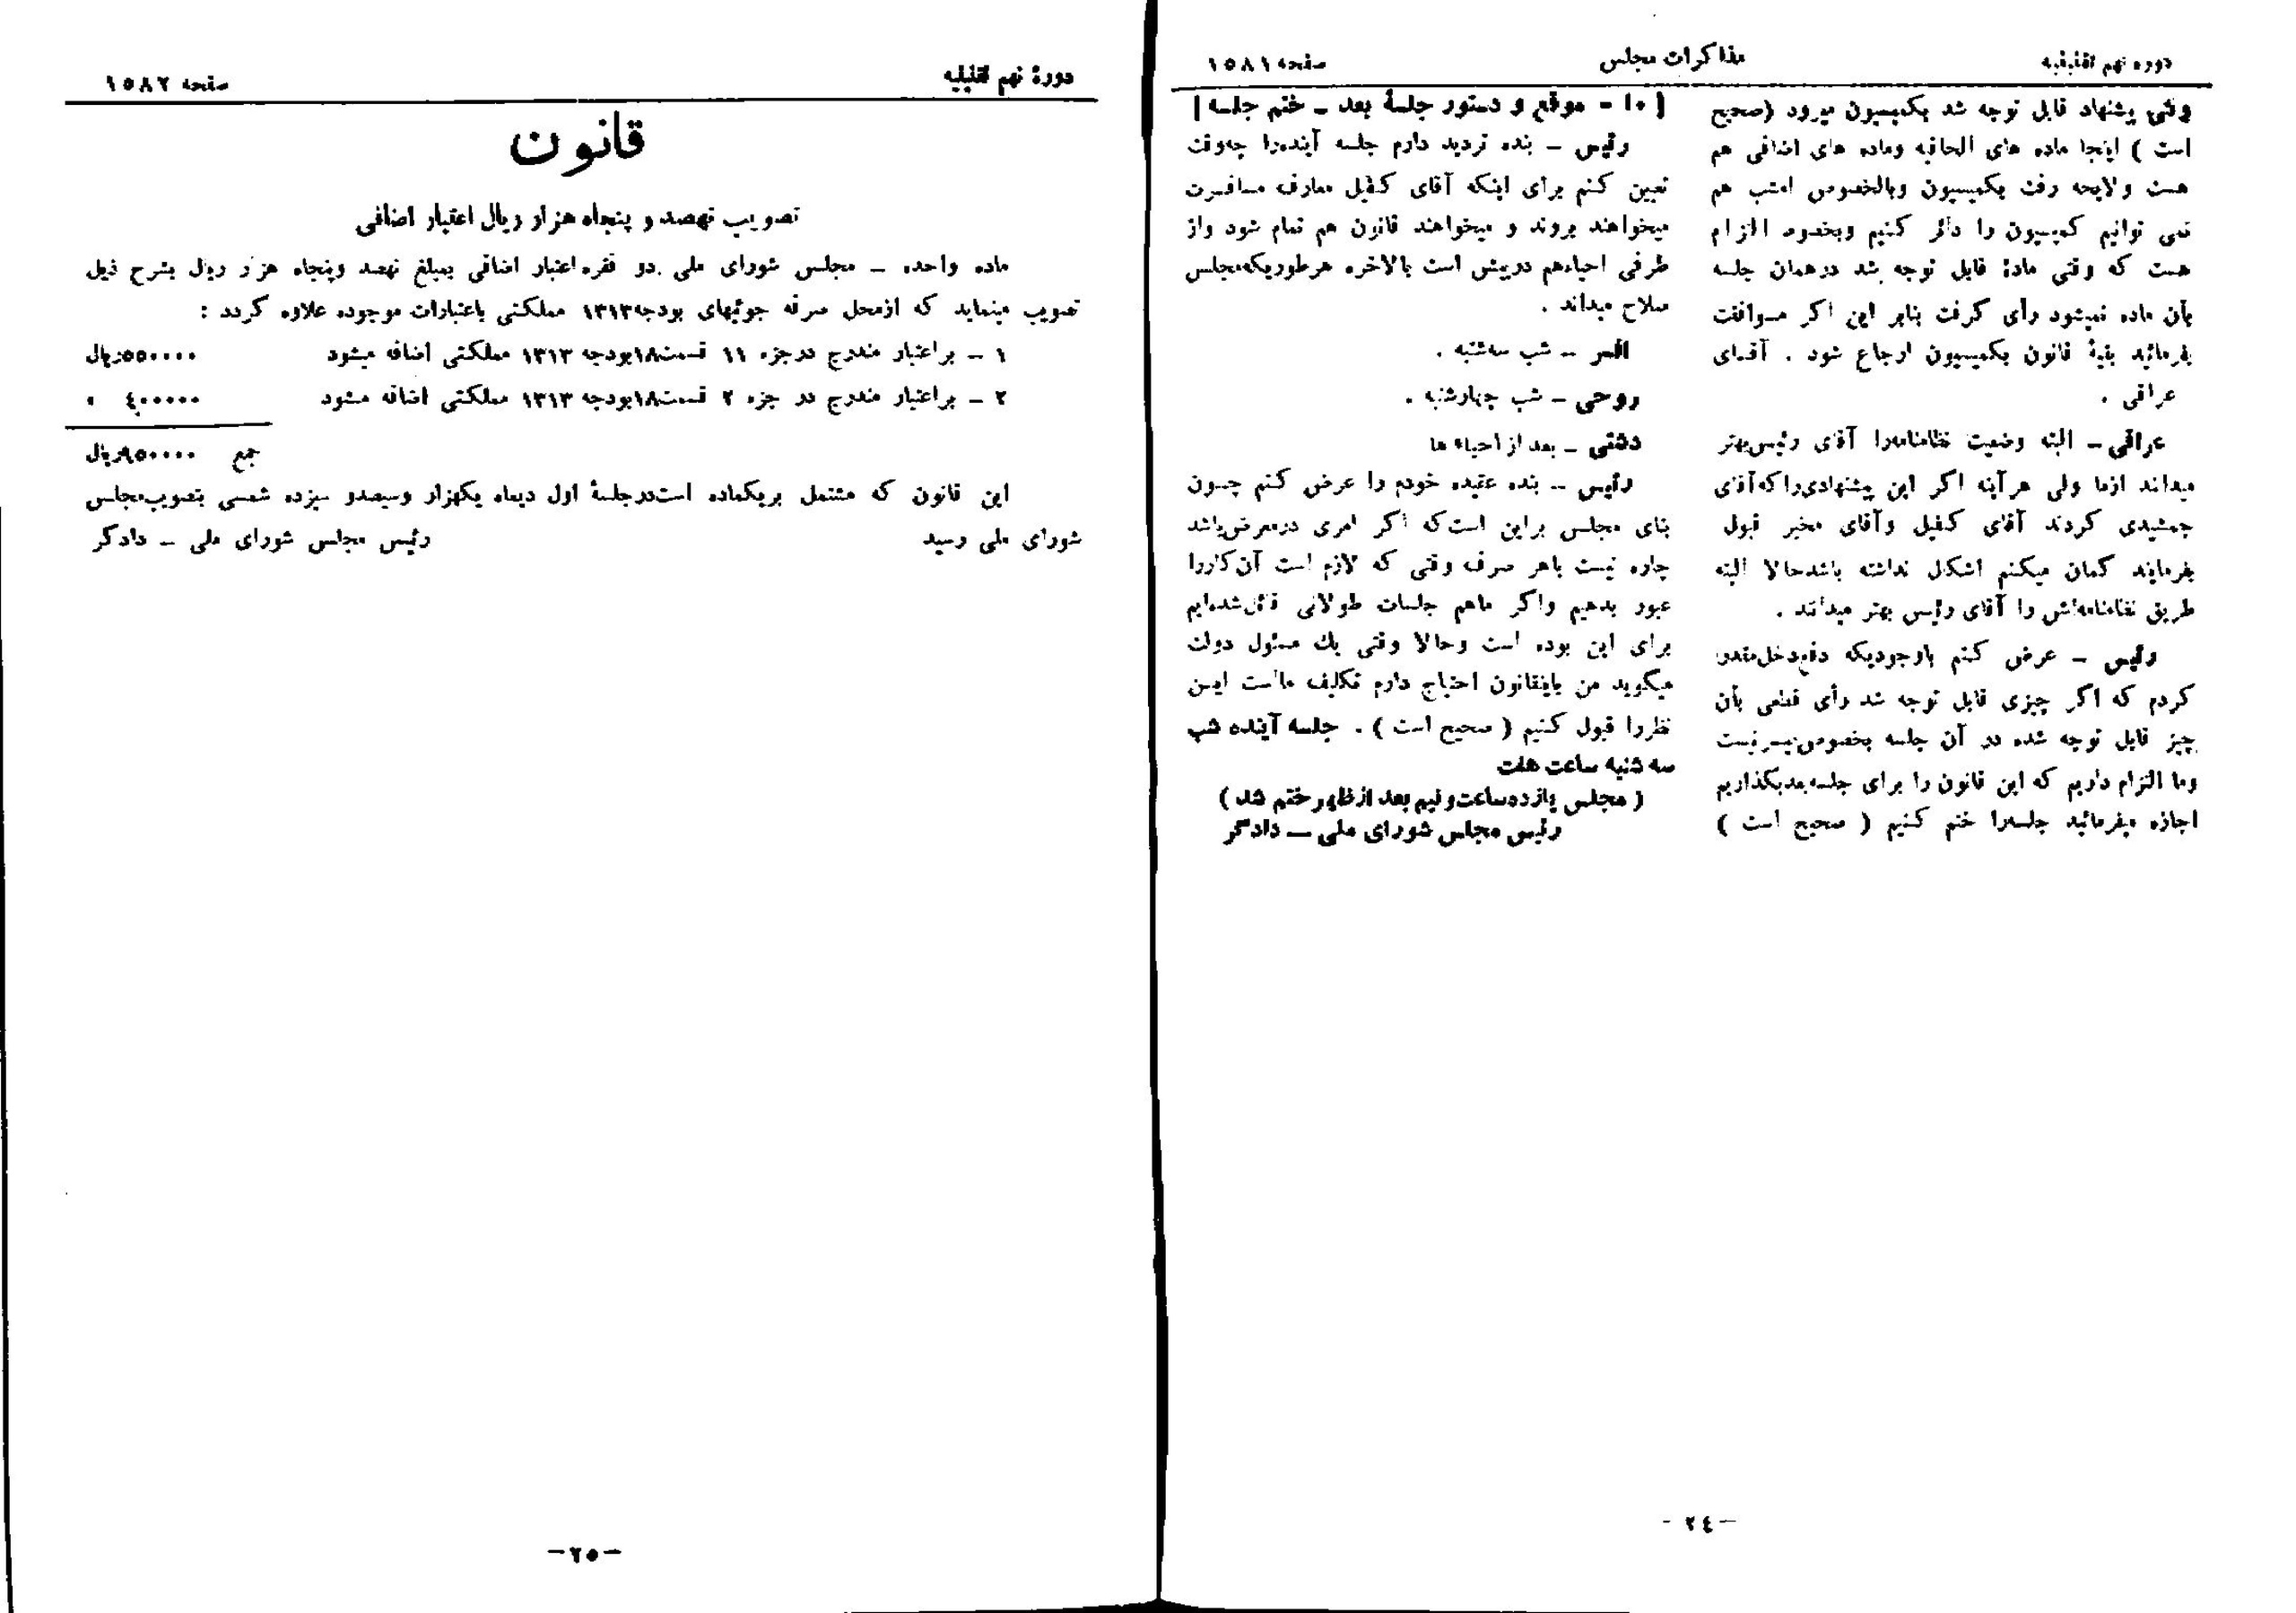 دوره نهم تقنینیه
مذاکرات مجلس
صفحه ۱۵۸۱
وقتی پیشنهاد قابل توجه شد بکمیسیون میرود (صحیح
است ) اینجا ماده های الحاقیه وماده های اضافی هم
هست ولایحه رفت بکمیسیون وبالخصوص امشب هم
نمی توانیم کمیسیون را دائر کنیم وبخصوصه الزام
هست که وقتی مادۀ قابل توجه شد درهمان جلسه
بآن ماده نمیشود رأی گرفت بنابر این اگر مـوافقت
بفرمائید بقیۀ قانون بکمیسیون ارجاع شود . آقـای
عراقی .
عراقی – البته وضعیت نظامنامه‌را آقای رئیس‌بهتر
میداند ازما ولی هرآینه اگر این پیشنهادی‌راکه‌آقای
جمشیدی کردند آقای کفیل وآقای مخبر قبول
بفرمایند گمان میکنم اشکال نداشته باشدحالا البته
طریق نظامنامه‌اش را آقای رئیس بهتر میداند .
رئیس – عرض کنم باوجودیکه دفع‌دخل‌مقدر
کردم که اگر چیزی قابل توجه شد رأی قطعی بآن
چیز قابل توجه شده در آن جلسه بخصوص‌میسرنیست
وما الزام داریم که این قانون را برای جلسه‌بعدبگذاریم
اجازه میفرمائید جلسه‌را ختم کنیم ( صحیح است )
[ ۱۰ – موقع و دستور جلسۀ بعد – ختم جلسه ]
رئیس – بنده تردید دارم جلسه آینده‌را چه‌وقت
تعیین کنم برای اینکه آقای کفیل معارف مسافـرت
میخواهند بروند و میخواهند قانون هم تمام شود واز
طرفی احیاءهم درپیش است بالاخره هرطوریکه‌مجلس
صلاح میداند .
افسر – شب سه‌شنبه .
روحی – شب چهارشنبه .
دشتی – بعد از احیاء ها
رئیس – بنده عقیده خودم را عرض کنم چـون
بنای مجلس براین است‌که اگر امری درمعرض‌باشد
چاره نیست باهر صرف وقتی که لازم است آن‌کاررا
عبور بدهیم واگر ماهم جلسات طولانی قائل‌شده‌ایم
برای این بوده است وحالا وقتی یك مسئول دولت
میگوید من باینقانون احتیاج دارم تکلیف مااست ایـن
نظررا قبول کنیم ( صحیح است ) . جلسه آینده شب
سه شنبه ساعت هفت
( مجلس یازده‌ساعت‌ونیم بعد ازظهر ختم شد )
رئیس مجلس شورای ملی – دادگر
–۲٤–
دورۀ نهم تقنینیه
صفحه ۱۵۸۲
قانون
تصویب نهصد و پنجاه هزار ریال اعتبار اضافی
ماده واحده – مجلس شورای ملی دو فقره اعتبار اضافی بمبلغ نهصد وپنجاه هزار ریال بشرح ذیل
تصویب مینماید که ازمحل صرفه جوئیهای بودجه۱۳۱۳ مملکتی باعتبارات موجوده علاوه گردد :
۱ – براعتبار مندرج درجزء ۱۱ قسمت۱۸بودجه ۱۳۱۳ مملکتی اضافه میشود ۵۵۰۰۰۰ریال
۲ – براعتبار مندرج در جزء ۲ قسمت۱۸بودجه ۱۳۱۳ مملکتی اضافه میشود ٤۰۰۰۰۰ »
جمع ۹۵۰۰۰۰ریال
این قانون که مشتمل بریکماده است‌درجلسۀ اول دیماه یکهزار وسیصدو سیزده شمسی بتصویب‌مجلس
شورای ملی رسید رئیس مجلس شورای ملی – دادگر
–۲۵–